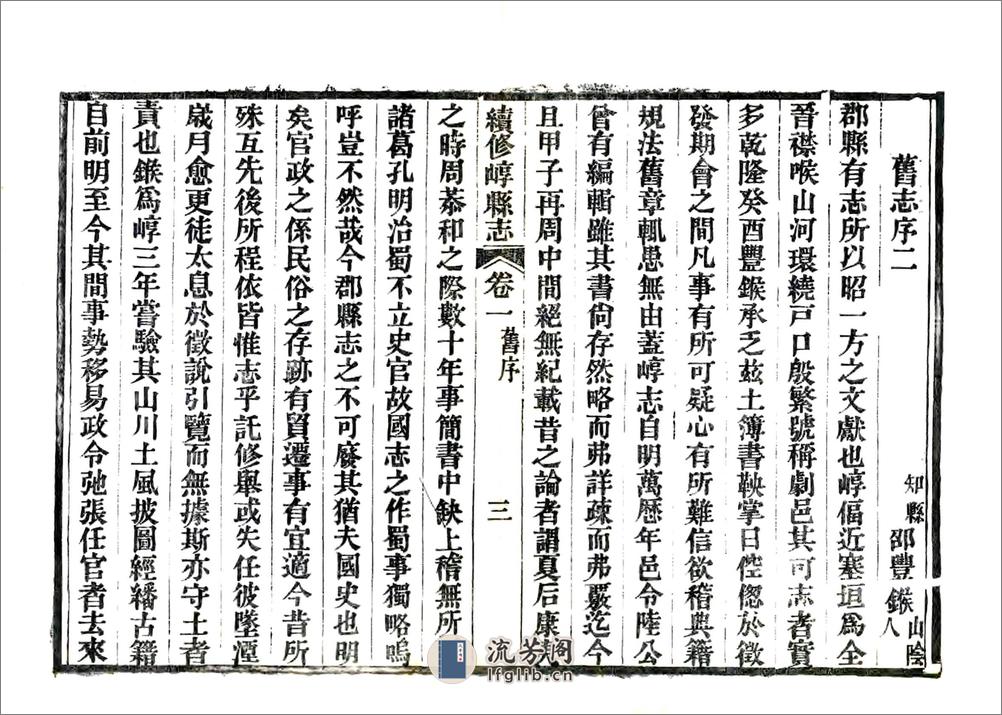 舊志序二
知縣 邵豐鍭 山陰人
郡縣有志所以昭一方之文獻也崞偪近塞垣爲全
晉襟喉山河環繞戸口殷繁號稱劇邑其可志者實
多乾隆癸酉豐鍭承乏兹土簿書鞅掌日倥偬於徵
發期會之間凡事有所可疑心有所難信欲稽典籍
規法舊章輒患無由蓋崞志自明萬歷年邑令陸公
曾有編輯雖其書尙存然略而弗詳疎而弗嚴迄今
且甲子再周中間絕無紀載昔之論者謂夏后康
續修崞縣志 卷一 舊序 三
之時周共和之際數十年事簡書中缺上稽無所
諸葛孔明治蜀不立史官故國志之作蜀事獨略嗚
呼豈不然哉今郡縣志之不可廢其猶夫國史也明
矣官政之係民俗之存跡有貿遷事有宜適今昔所
殊互先後所程依皆惟志乎託修舉或失任彼墜湮
歲月愈更徒太息於徵說引覽而無據斯亦守土者
責也鍭爲崞三年嘗驗其山川土風披圖經繙古籍
自前明至今其間事勢移易政令弛張任官者去來
流芳閣
lfglib.cn